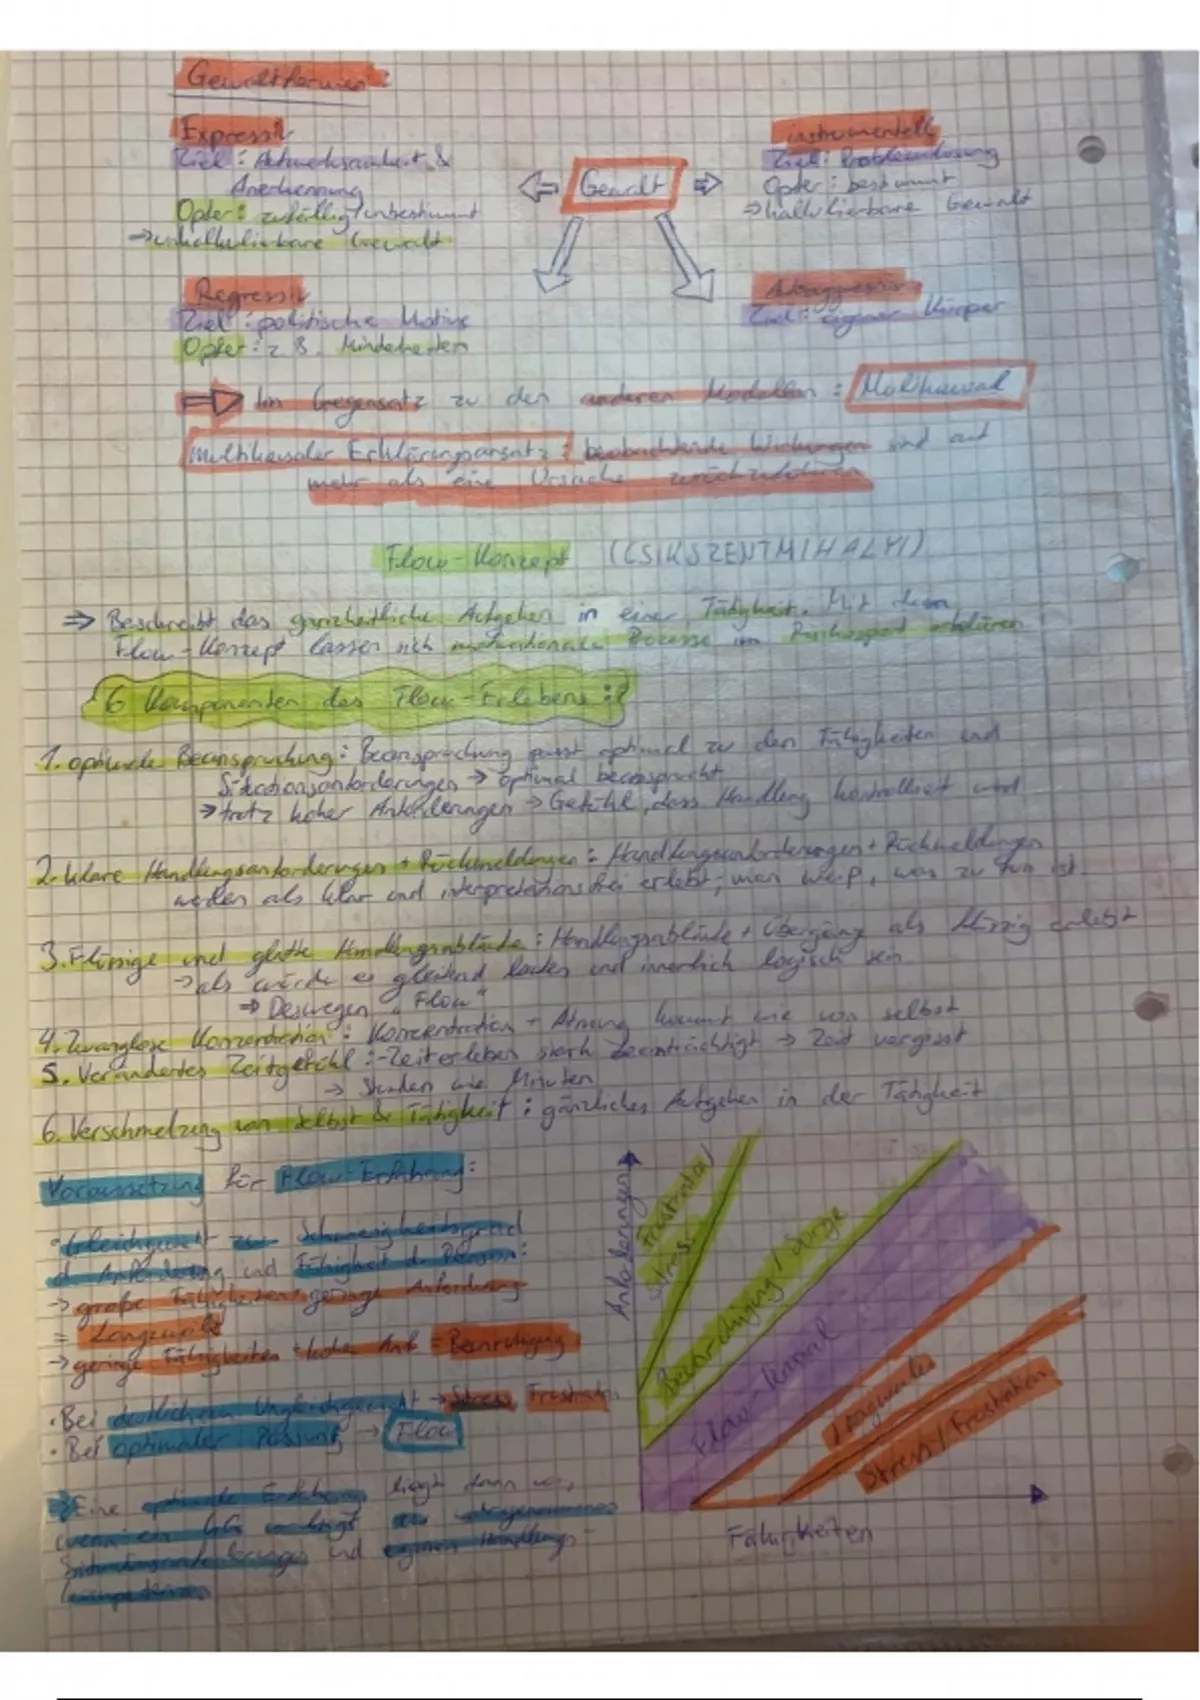 Gewaltformen:
Expressiv
Ziel: Aufmerksamkeit &
Anerkennung
Opfer: zufällig/unbestimmt
→ unkalkulierbare Gewalt
Gewalt
instrumentell
Ziel: Problemlösung
Opfer: bestimmt
⇒ kalkulierbare Gewalt
Regressiv
Ziel: politische Motive
Opfer: z.B. Minderheiten
Autoaggressiv
Ziel: eigener Körper
⇒ Im Gegensatz zu den anderen Modellen: Multikausal
multikausaler Erklärungsansatz: beobachtende Wirkungen sind auf
mehr als eine Ursache zurückzuführen
Flow-Konzept (CSIKSZENTMIHALYI)
⇒ Beschreibt das ganzheitliche Aufgehen in einer Tätigkeit. Mit dem
Flow-Konzept lassen sich motivationale Prozesse im Risikosport erklären
6 Komponenten des Flow-Erlebens:
1. optimale Beanspruchung: Beanspruchung passt optimal zu den Fähigkeiten und
Situationsanforderungen → optimal beansprucht
→ trotz hoher Anforderungen → Gefühl, dass Handlung kontrolliert wird
2. klare Handlungsanforderungen + Rückmeldungen: Handlungsanforderungen + Rückmeldungen
werden als klar und interpretationsfrei erlebt; man weiß, was zu tun ist.
3. Flüssige und glatte Handlungsabläufe: Handlungsabläufe + Übergänge als flüssig erlebt
→ als würde es gleitend laufen und innerlich logisch sein.
⇒ Deswegen "Flow"
4. Zwanglose Konzentration: Konzentration + Atmung kommt wie von selbst
5. Verändertes Zeitgefühl: - Zeiterleben stark beeinträchtigt → Zeit vergisst
→ Stunden wie Minuten
6. Verschmelzung von Selbst & Tätigkeit: gänzliches Aufgehen in der Tätigkeit
Voraussetzung für Flow-Erfahrung:
• Gleichgewicht zw. Schwierigkeitsgrad
d. Anforderung und Fähigkeit d. Person:
→ große Fähigkeiten + geringe Anforderung
= Langeweile
→ geringe Fähigkeiten + hohe Anf. = Beunruhigung
• Bei deutlichem Ungleichgewicht → Stress, Frustration
• Bei optimaler Passung → Flow
⇒ Eine optimale Erfahrung liegt dann vor,
wenn ein GG zw.
Situationsanforderungen und eigenen Handlungs-
kompetenzen
Anforderungen
Frustration
Stress
Beunruhigung / Sorge
Flow-Kanal
Langeweile
Stress / Frustration
Fähigkeiten